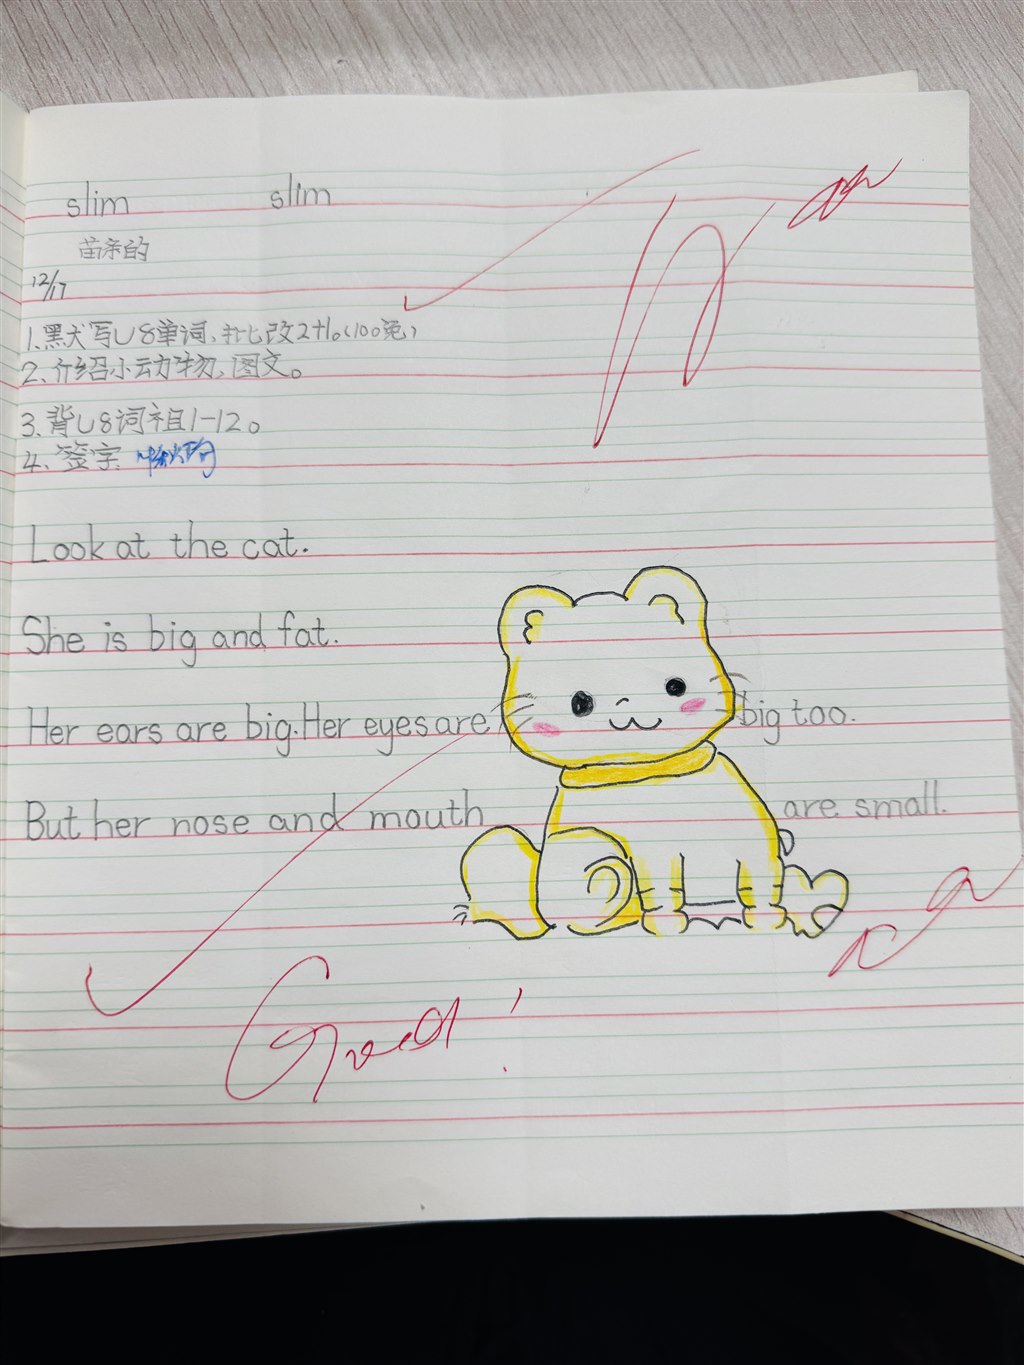 slim slim
苗条的
12/17
1.默写U8单词,批改2+1。(100免)
2.介绍小动物,图文。
3.背U8词组1-12。
4.签字
Look at the cat.
She is big and fat.
Her ears are big. Her eyes are big too.
But her nose and mouth are small.
Good!